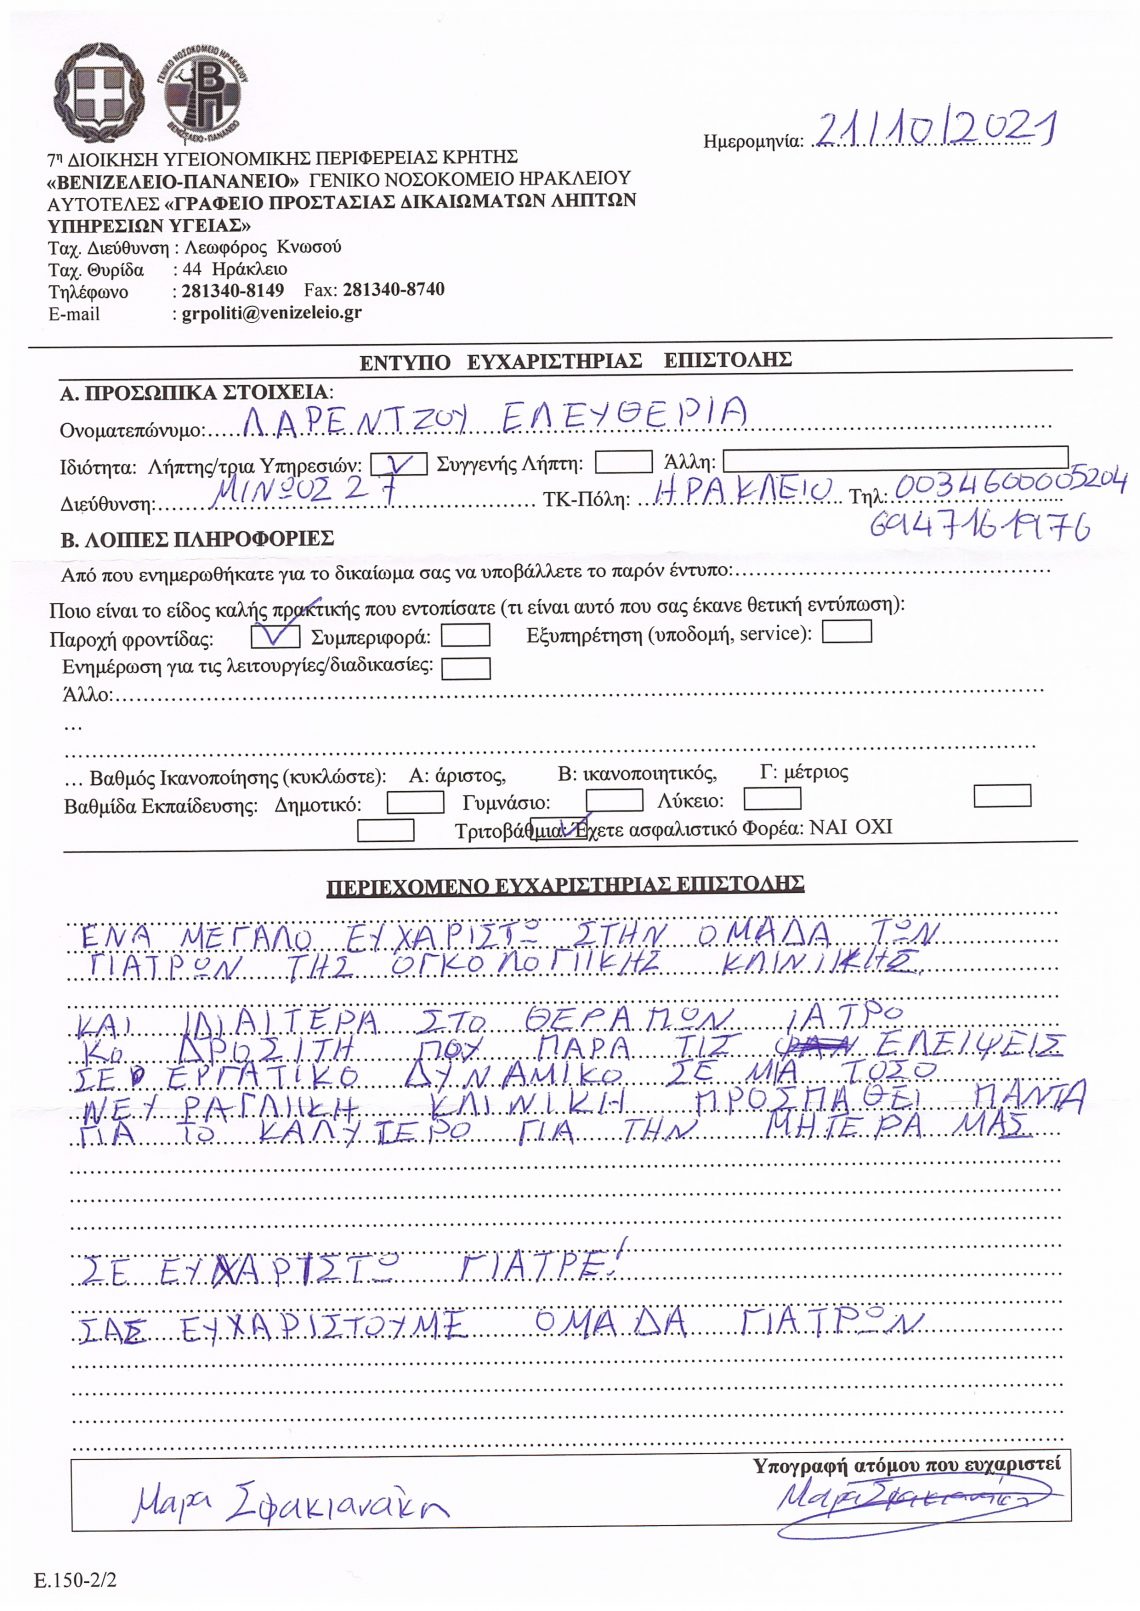 ΓΕΝΙΚΟ ΝΟΣΟΚΟΜΕΙΟ ΗΡΑΚΛΕΙΟΥ
ΒΠ
ΒΕΝΙΖΕΛΕΙΟ-ΠΑΝΑΝΕΙΟ
Ημερομηνία: 21/10/2021
7η ΔΙΟΙΚΗΣΗ ΥΓΕΙΟΝΟΜΙΚΗΣ ΠΕΡΙΦΕΡΕΙΑΣ ΚΡΗΤΗΣ
«ΒΕΝΙΖΕΛΕΙΟ-ΠΑΝΑΝΕΙΟ» ΓΕΝΙΚΟ ΝΟΣΟΚΟΜΕΙΟ ΗΡΑΚΛΕΙΟΥ
ΑΥΤΟΤΕΛΕΣ «ΓΡΑΦΕΙΟ ΠΡΟΣΤΑΣΙΑΣ ΔΙΚΑΙΩΜΑΤΩΝ ΛΗΠΤΩΝ
ΥΠΗΡΕΣΙΩΝ ΥΓΕΙΑΣ»
Ταχ. Διεύθυνση : Λεωφόρος Κνωσού
Ταχ. Θυρίδα : 44 Ηράκλειο
Τηλέφωνο : 281340-8149 Fax: 281340-8740
E-mail : grpoliti@venizeleio.gr
ΕΝΤΥΠΟ ΕΥΧΑΡΙΣΤΗΡΙΑΣ ΕΠΙΣΤΟΛΗΣ
Α. ΠΡΟΣΩΠΙΚΑ ΣΤΟΙΧΕΙΑ:
Ονοματεπώνυμο: ΛΑΡΕΝΤΖΟΥ ΕΛΕΥΘΕΡΙΑ
Ιδιότητα: Λήπτης/τρια Υπηρεσιών: Συγγενής Λήπτη: Άλλη:
Διεύθυνση: ΜΙΝΩΟΣ 27 ΤΚ-Πόλη: ΗΡΑΚΛΕΙΟ Τηλ: 0034600005204
6947161976
Β. ΛΟΙΠΕΣ ΠΛΗΡΟΦΟΡΙΕΣ
Από που ενημερωθήκατε για το δικαίωμα σας να υποβάλλετε το παρόν έντυπο:
Ποιο είναι το είδος καλής πρακτικής που εντοπίσατε (τι είναι αυτό που σας έκανε θετική εντύπωση):
Παροχή φροντίδας: Συμπεριφορά: Εξυπηρέτηση (υποδομή, service):
Ενημέρωση για τις λειτουργίες/διαδικασίες:
Άλλο:
…
… Βαθμός Ικανοποίησης (κυκλώστε): Α: άριστος, Β: ικανοποιητικός, Γ: μέτριος
Βαθμίδα Εκπαίδευσης: Δημοτικό: Γυμνάσιο: Λύκειο:
Τριτοβάθμια: Έχετε ασφαλιστικό Φορέα: ΝΑΙ ΟΧΙ
ΠΕΡΙΕΧΟΜΕΝΟ ΕΥΧΑΡΙΣΤΗΡΙΑΣ ΕΠΙΣΤΟΛΗΣ
ΕΝΑ ΜΕΓΑΛΟ ΕΥΧΑΡΙΣΤΩ ΣΤΗΝ ΟΜΑΔΑ ΤΩΝ
ΓΙΑΤΡΩΝ ΤΗΣ ΟΓΚΟΛΟΓΙΚΗΣ ΚΛΙΝΙΚΗΣ,
ΚΑΙ ΙΔΙΑΙΤΕΡΑ ΣΤΟ ΘΕΡΑΠΩΝ ΙΑΤΡΟ
Κο ΔΡΟΣΙΤΗ ΠΟΥ ΠΑΡΑ ΤΙΣ ΕΛΕΙΨΕΙΣ
ΣΕ ΕΡΓΑΤΙΚΟ ΔΥΝΑΜΙΚΟ ΣΕ ΜΙΑ ΤΟΣΟ
ΝΕΥΡΑΓΛΙΚΗ ΚΛΙΝΙΚΗ ΠΡΟΣΠΑΘΕΙ ΠΑΝΤΑ
ΓΙΑ ΤΟ ΚΑΛΥΤΕΡΟ ΓΙΑ ΤΗΝ ΜΗΤΕΡΑ ΜΑΣ
ΣΕ ΕΥΧΑΡΙΣΤΩ ΓΙΑΤΡΕ!
ΣΑΣ ΕΥΧΑΡΙΣΤΟΥΜΕ ΟΜΑΔΑ ΓΙΑΤΡΩΝ
Υπογραφή ατόμου που ευχαριστεί
Μαρι Σφακιανάκη
Ε.150-2/2